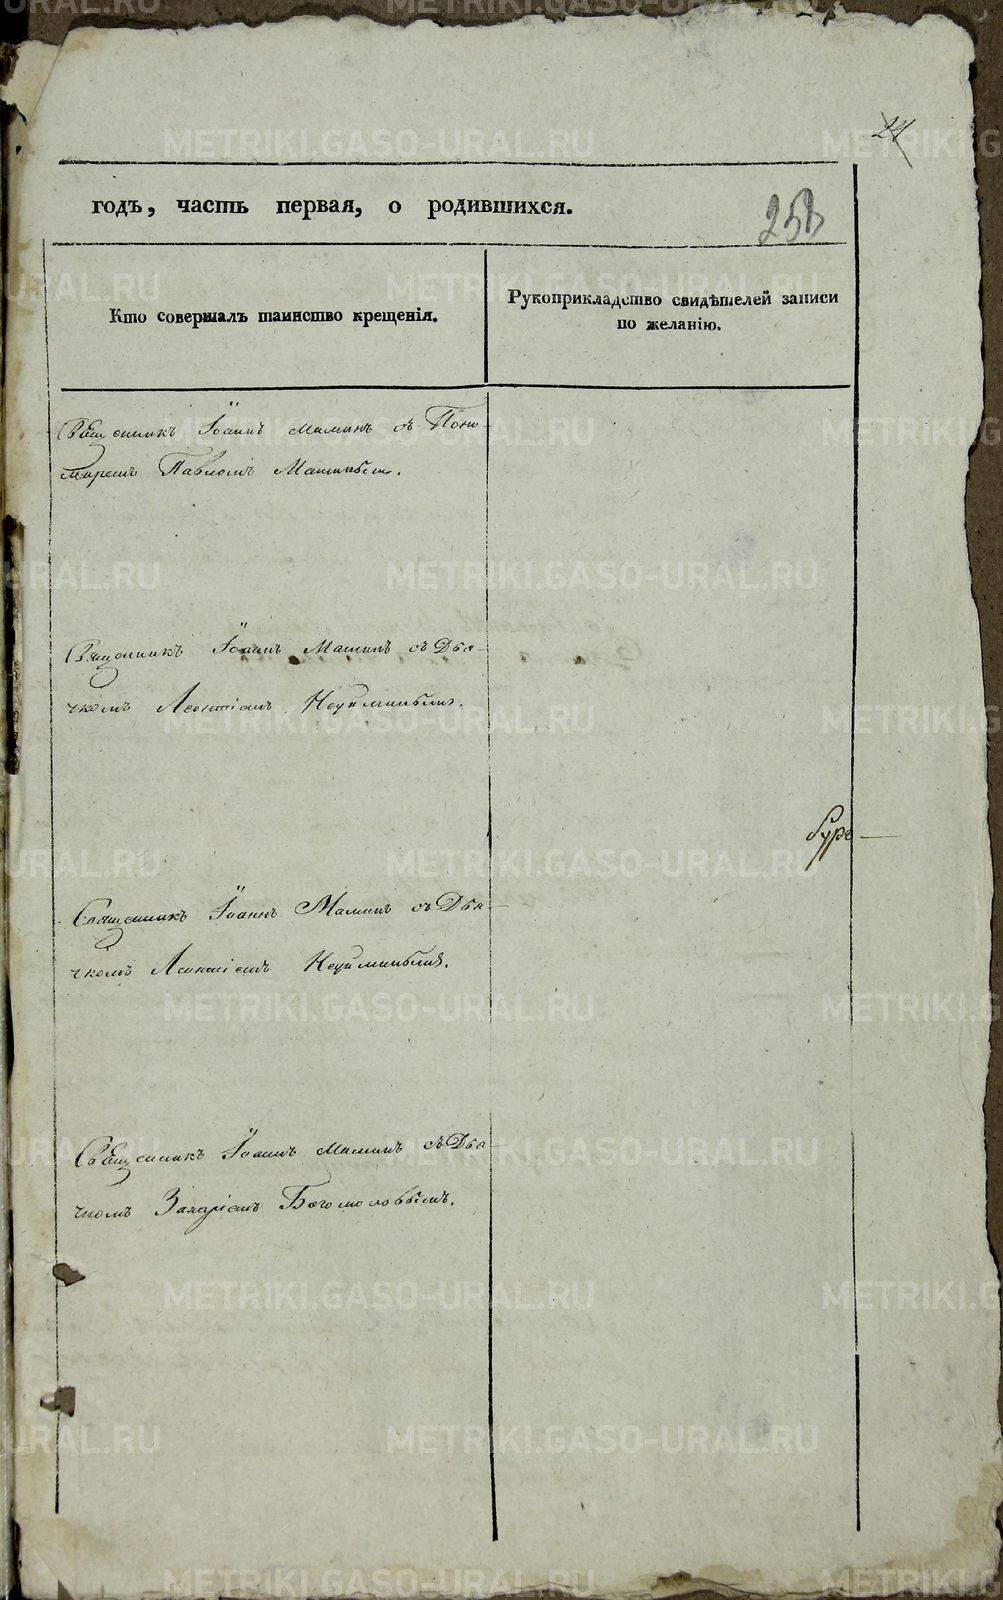 24
годъ, часть первая, о родившихся.
253
Кто совершалъ таинство крещенія.
Рукоприкладство свидѣтелей записи
по желанію.
Священникъ Іоаннъ Маминъ съ Поно-
маремъ Павломъ
Священникъ Іоаннъ Маминъ съ Дья-
чкомъ Леонтіемъ Неуйминымъ.
Священникъ Іоаннъ Маминъ съ Дья-
чкомъ Леонтіемъ Неуйминымъ.
Священникъ Іоаннъ Маминъ съ Дья-
чкомъ Захаріемъ Богомоловымъ.
METRIKI.GASO-URAL.RU